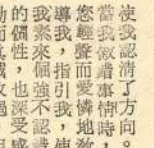 使我認清了方向。
當我做着事情時，
您輕聲而愛憐地教
導我，指引我，使
我素來倔強不認
的個性，也深受感